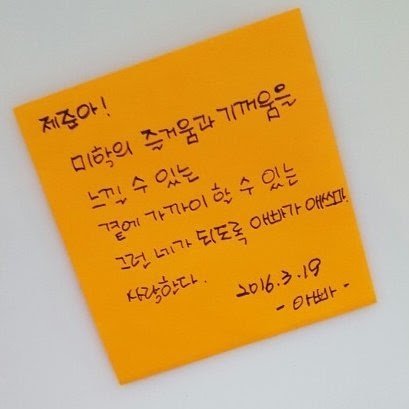 제준아!
미학의 즐거움과 기꺼움을
느낄 수 있는
곁에 가까이 할 수 있는
그런 네가 되도록 아빠가 애쓰마.
사랑한다.
2016.3.19
- 아빠 -